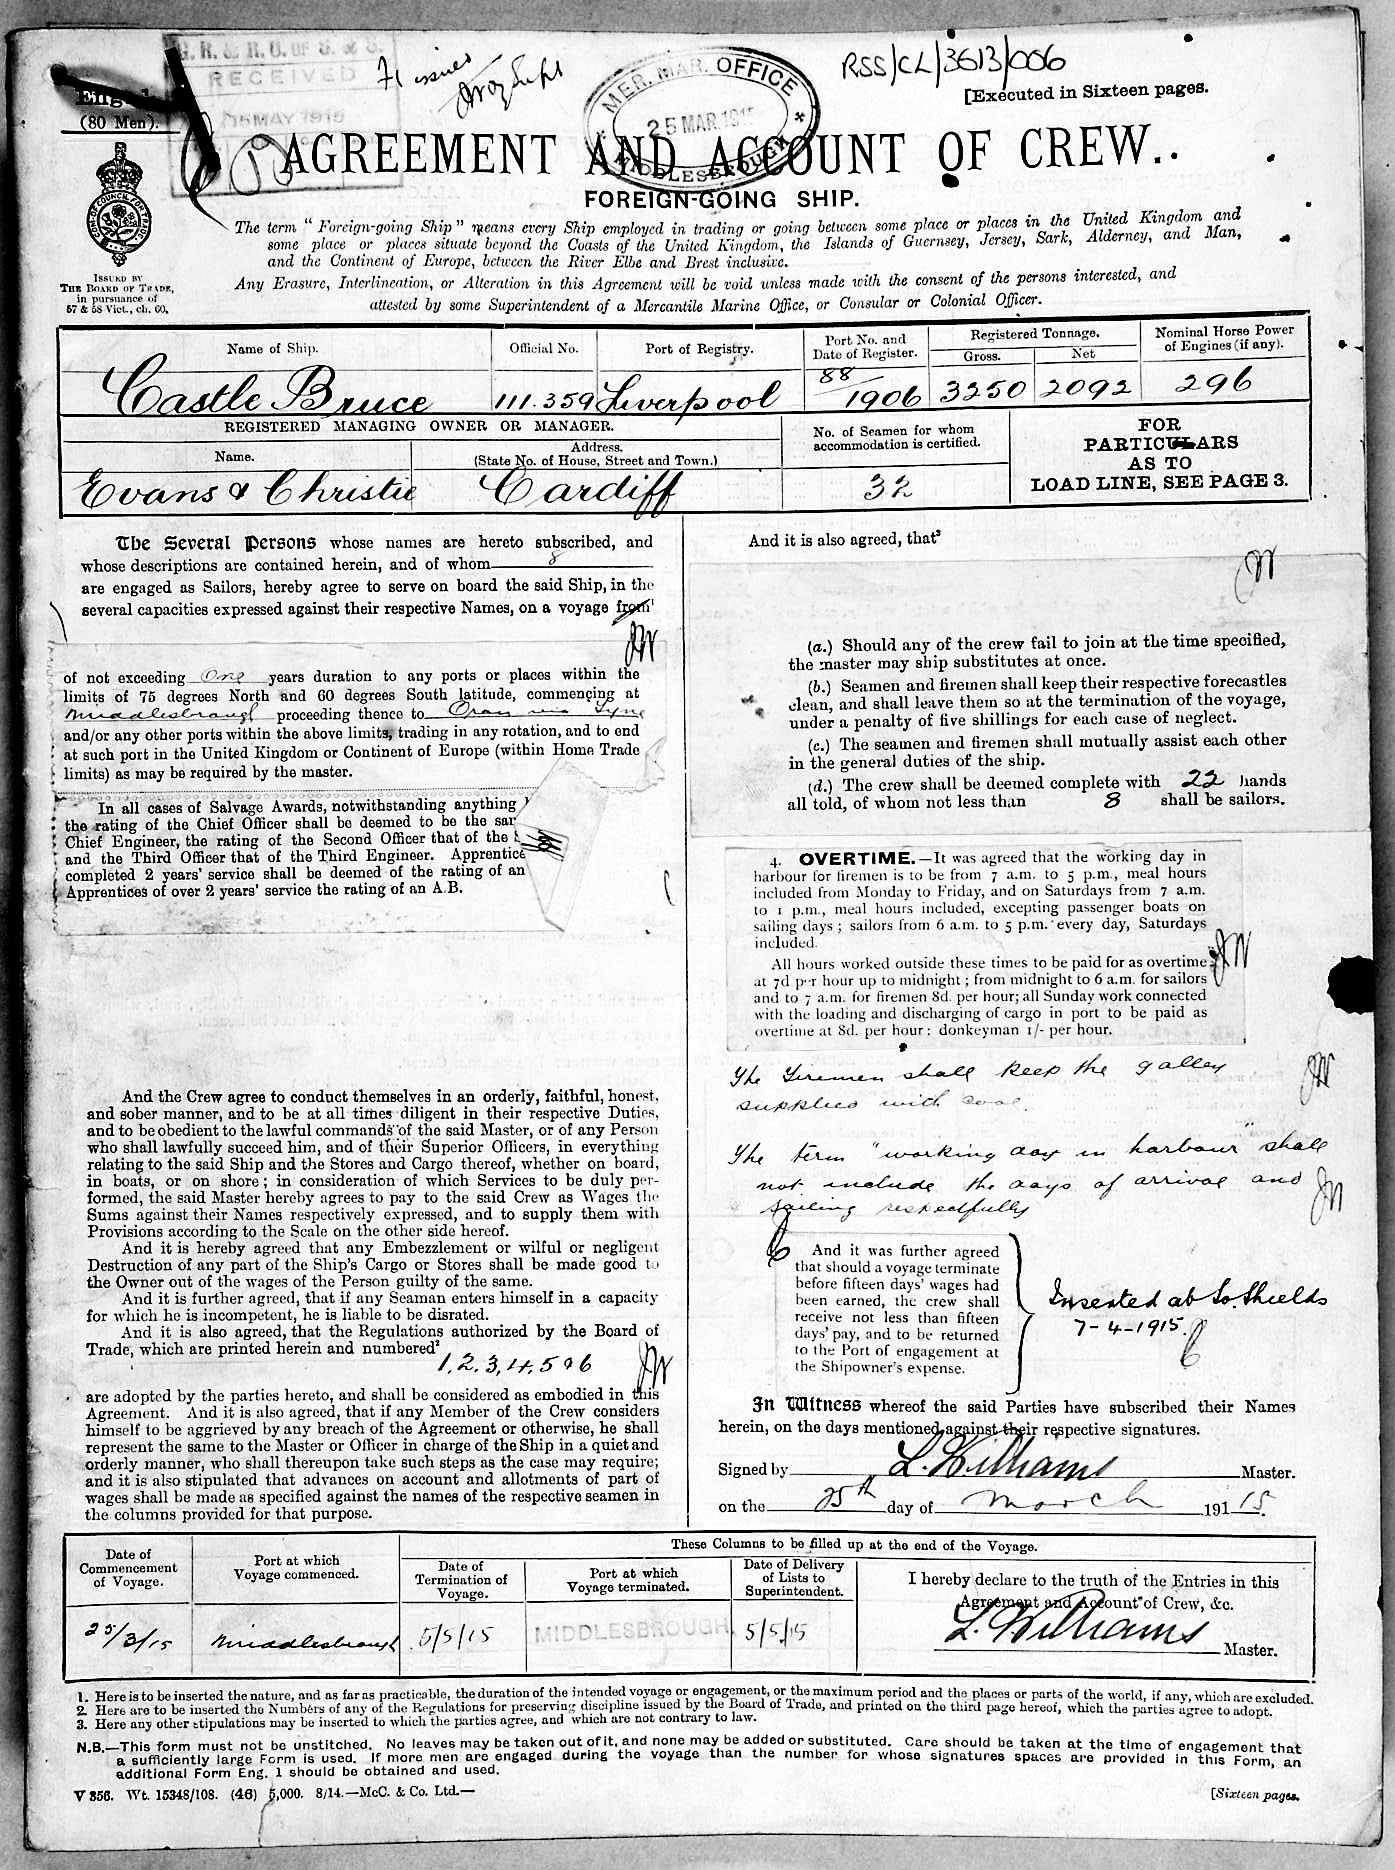 G. R. & R. O. OF S. & S.
RECEIVED
5 MAY 1915
F1 issued
MER. MAR. OFFICE
25 MAR. 1915
MIDDLESBROUGH
RSS/CL/3613/006
[Executed in Sixteen pages.
(80 Men).
AGREEMENT AND ACCOUNT OF CREW.
FOREIGN-GOING SHIP.
ISSUED BY
THE BOARD OF TRADE,
in pursuance of
57 & 58 Vict., ch. 60.
The term "Foreign-going Ship" means every Ship employed in trading or going between some place or places in the United Kingdom and
some place or places situate beyond the Coasts of the United Kingdom, the Islands of Guernsey, Jersey, Sark, Alderney, and Man,
and the Continent of Europe, between the River Elbe and Brest inclusive.
Any Erasure, Interlineation, or Alteration in this Agreement will be void unless made with the consent of the persons interested, and
attested by some Superintendent of a Mercantile Marine Office, or Consular or Colonial Officer.
Name of Ship. Official No. Port of Registry. Port No. and Date of Register. Registered Tonnage. Gross. Net Nominal Horse Power of Engines (if any).
Castle Bruce 111.359 Liverpool 88/1906 3250 2092 296
REGISTERED MANAGING OWNER OR MANAGER.
Name. Address. (State No. of House, Street and Town.) No. of Seamen for whom accommodation is certified.
Evans & Christie Cardiff 32
FOR
PARTICULARS
AS TO
LOAD LINE, SEE PAGE 3.
The Several Persons whose names are hereto subscribed, and
whose descriptions are contained herein, and of whom 8
are engaged as Sailors, hereby agree to serve on board the said Ship, in the
several capacities expressed against their respective Names, on a voyage from¹
JW
of not exceeding One years duration to any ports or places within the
limits of 75 degrees North and 60 degrees South latitude, commencing at
Middlesbrough proceeding thence to Oran via Tyne
and/or any other ports within the above limits, trading in any rotation, and to end
at such port in the United Kingdom or Continent of Europe (within Home Trade
limits) as may be required by the master.
In all cases of Salvage Awards, notwithstanding anything
the rating of the Chief Officer shall be deemed to be the sam
Chief Engineer, the rating of the Second Officer that of the S
and the Third Officer that of the Third Engineer. Apprentice
completed 2 years' service shall be deemed of the rating of an
Apprentices of over 2 years' service the rating of an A.B.
JW
And the Crew agree to conduct themselves in an orderly, faithful, honest,
and sober manner, and to be at all times diligent in their respective Duties,
and to be obedient to the lawful commands of the said Master, or of any Person
who shall lawfully succeed him, and of their Superior Officers, in everything
relating to the said Ship and the Stores and Cargo thereof, whether on board,
in boats, or on shore; in consideration of which Services to be duly per-
formed, the said Master hereby agrees to pay to the said Crew as Wages the
Sums against their Names respectively expressed, and to supply them with
Provisions according to the Scale on the other side hereof.
And it is hereby agreed that any Embezzlement or wilful or negligent
Destruction of any part of the Ship's Cargo or Stores shall be made good to
the Owner out of the wages of the Person guilty of the same.
And it is further agreed, that if any Seaman enters himself in a capacity
for which he is incompetent, he is liable to be disrated.
And it is also agreed, that the Regulations authorized by the Board of
Trade, which are printed herein and numbered²
1, 2, 3, 4, 5 & 6
JW
are adopted by the parties hereto, and shall be considered as embodied in this
Agreement. And it is also agreed, that if any Member of the Crew considers
himself to be aggrieved by any breach of the Agreement or otherwise, he shall
represent the same to the Master or Officer in charge of the Ship in a quiet and
orderly manner, who shall thereupon take such steps as the case may require;
and it is also stipulated that advances on account and allotments of part of
wages shall be made as specified against the names of the respective seamen in
the columns provided for that purpose.
And it is also agreed, that³
JW
(a.) Should any of the crew fail to join at the time specified,
the master may ship substitutes at once.
(b.) Seamen and firemen shall keep their respective forecastles
clean, and shall leave them so at the termination of the voyage,
under a penalty of five shillings for each case of neglect.
(c.) The seamen and firemen shall mutually assist each other
in the general duties of the ship.
(d.) The crew shall be deemed complete with 22 hands
all told, of whom not less than 8 shall be sailors.
4. OVERTIME.—It was agreed that the working day in
harbour for firemen is to be from 7 a.m. to 5 p.m., meal hours
included from Monday to Friday, and on Saturdays from 7 a.m.
to 1 p.m., meal hours included, excepting passenger boats on
sailing days; sailors from 6 a.m. to 5 p.m. every day, Saturdays
included.
All hours worked outside these times to be paid for as overtime
at 7d per hour up to midnight; from midnight to 6 a.m. for sailors
and to 7 a.m. for firemen 8d. per hour; all Sunday work connected
with the loading and discharging of cargo in port to be paid as
overtime at 8d. per hour: donkeyman 1/- per hour.
JW
The Firemen shall keep the galley
supplied with coal.
JW
The term "working day in harbour" shall
not include the days of arrival and
sailing respectfully
JW
And it was further agreed
that should a voyage terminate
before fifteen days' wages had
been earned, the crew shall
receive not less than fifteen
days' pay, and to be returned
to the Port of engagement at
the Shipowner's expense.
Inserted at So. Shields
7-4-1915.
In Witness whereof the said Parties have subscribed their Names
herein, on the days mentioned against their respective signatures.
Signed by L. Williams Master.
on the 25th day of March 1915.
Date of Commencement of Voyage. Port at which Voyage commenced. These Columns to be filled up at the end of the Voyage.
Date of Termination of Voyage. Port at which Voyage terminated. Date of Delivery of Lists to Superintendent.
I hereby declare to the truth of the Entries in this
Agreement and Account of Crew, &c.
25/3/15 Middlesbrough 5/5/15 MIDDLESBROUGH 5/5/15
L. Williams Master.
1. Here is to be inserted the nature, and as far as practicable, the duration of the intended voyage or engagement, or the maximum period and the places or parts of the world, if any, which are excluded.
2. Here are to be inserted the Numbers of any of the Regulations for preserving discipline issued by the Board of Trade, and printed on the third page hereof, which the parties agree to adopt.
3. Here any other stipulations may be inserted to which the parties agree, and which are not contrary to law.
N.B.—This form must not be unstitched. No leaves may be taken out of it, and none may be added or substituted. Care should be taken at the time of engagement that
a sufficiently large Form is used. If more men are engaged during the voyage than the number for whose signatures spaces are provided in this Form, an
additional Form Eng. 1 should be obtained and used.
V 356. Wt. 15348/108. (46) 5,000. 8/14.—McC. & Co. Ltd.—
[Sixteen pages.